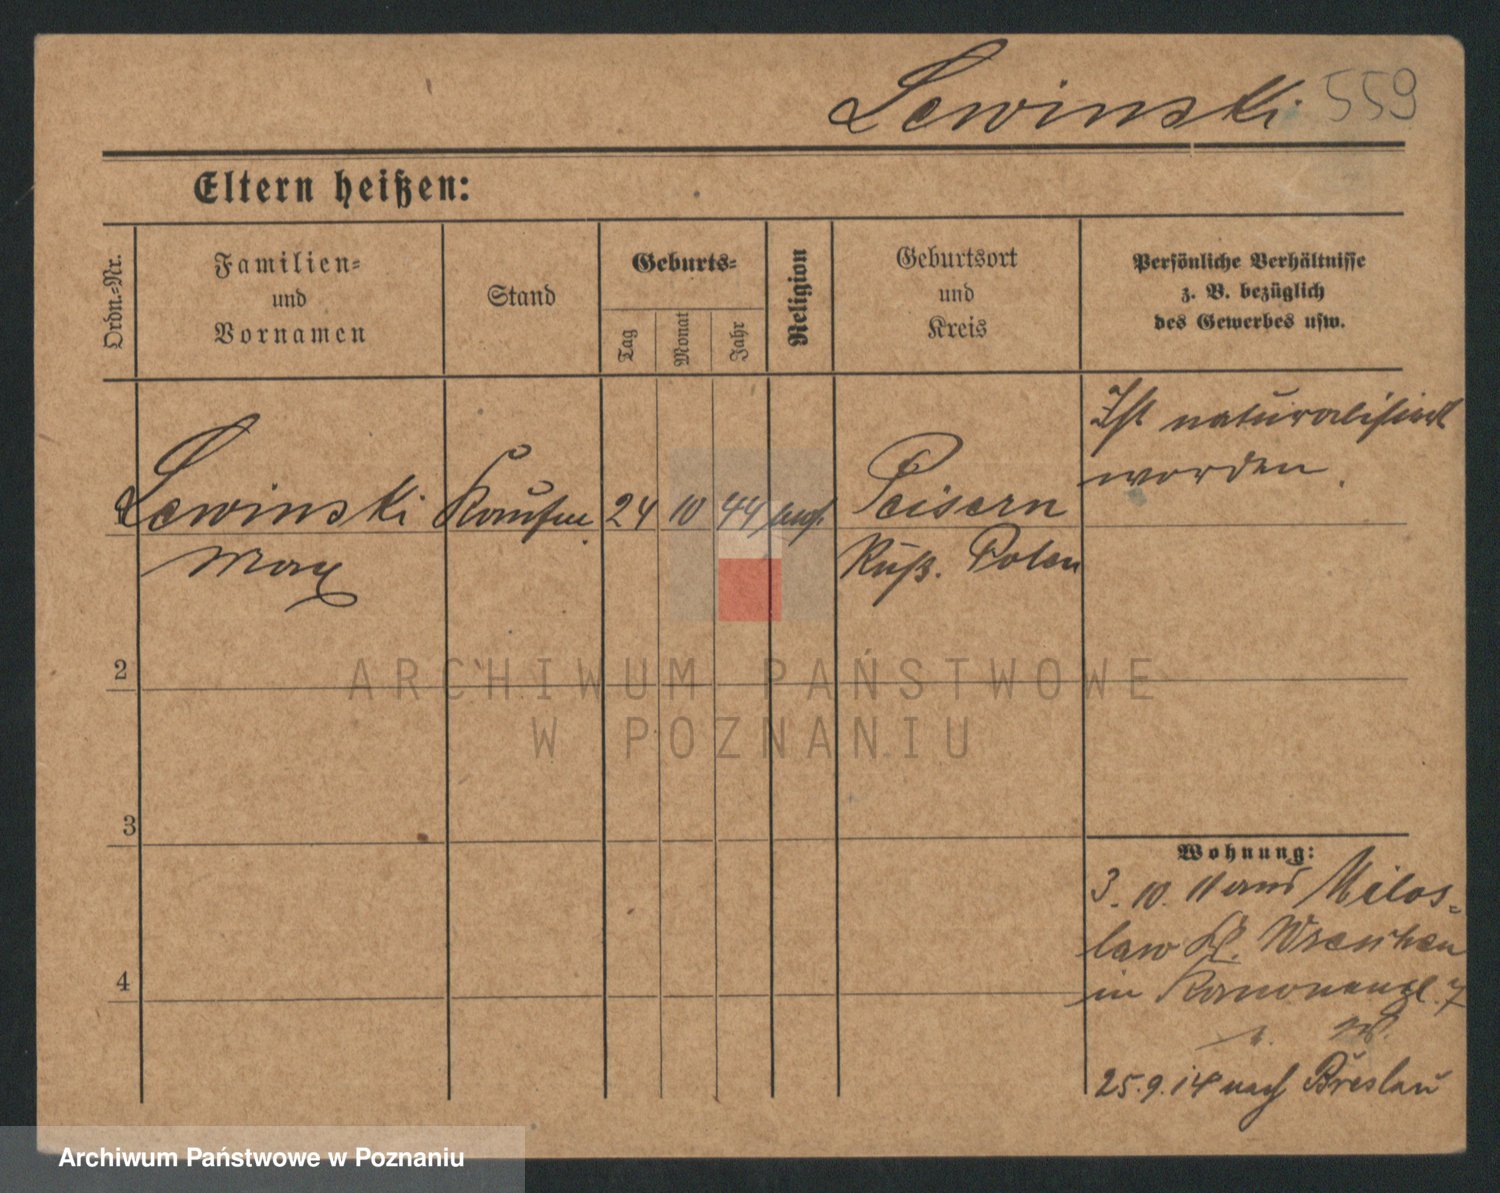 Lewinski 559
Eltern heißen:
Ordn.-Nr.
Familien-
und
Vornamen
Stand
Geburts-
Tag
Monat
Jahr
Religion
Geburtsort
und
Kreis
Persönliche Verhältnisse
z. B. bezüglich
des Gewerbes usw.
Lewinski Kaufm. 24 10 44 Peisern
Max Ruß. Polen
Ist naturalisiert
worden.
2
3
4
ARCHIWUM PAŃSTWOWE
W POZNANIU
Wohnung:
3. 10. 11 aus Milos-
law Kr. Wreschen
in Kanonenpl. 7
25.9.14 nach Breslau
Archiwum Państwowe w Poznaniu